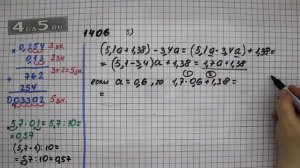 4 на 5 .ru
1406 5)
0,254 3 зн.
0,13 2 зн
762 3+2=5 зн.
254
0,03302 5 зн.
5,7·0,1=5,7:10=
=0,57
(5,7·1):10=
=5,7:10=0,57
(5,1a+1,38)-3,4a=(5,1a-3,4a)+1,38=
=(5,1-3,4)a+1,38=1,7a+1,38
если a=0,6, то 1,7·0,6+1,38=
=